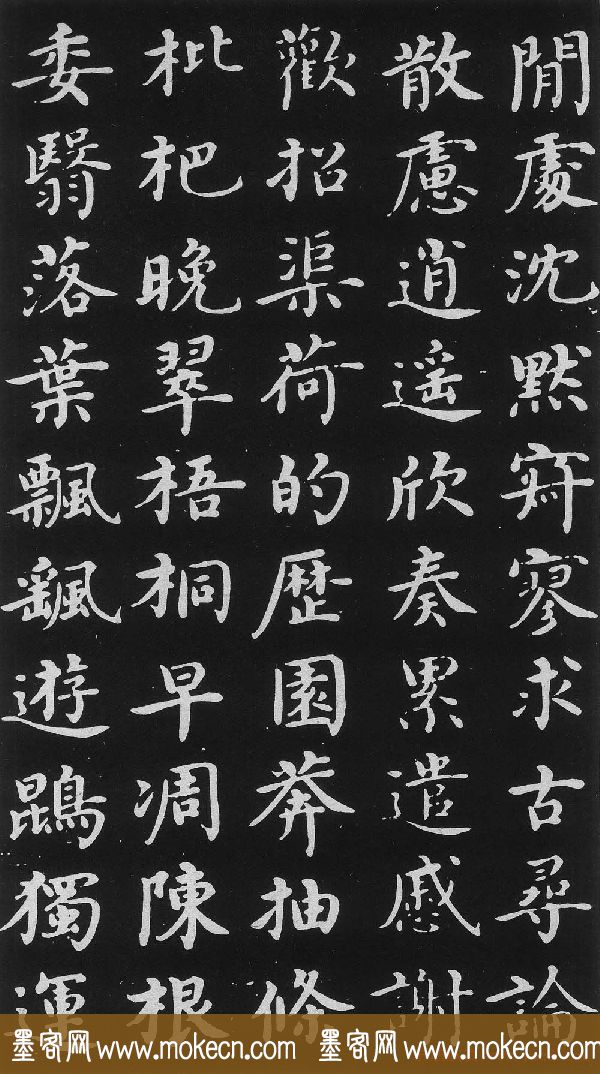 閒處沈默寂寥求古尋論
散慮逍遥欣奏累遣慼謝
歡招渠荷的歷園莽抽條
枇杷晚翠梧桐早凋陳根
委翳落葉飄颻遊鵾獨運
墨客网 www.mokecn.com 墨客网 www.mokecn.com